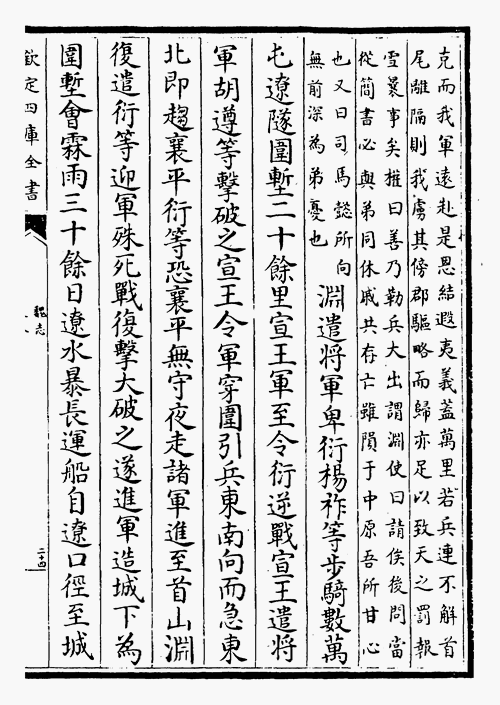 克而我軍遠赴是恩結遐夷義蓋萬里若兵連不解首
尾離隔則我虜其傍郡驅略而歸亦足以致天之罰報
雪曩事矣權曰善乃勒兵大出謂淵使曰請俟後問當
從簡書必與弟同休戚共存亡雖隕于中原吾所甘心
也又曰司馬懿所向
無前深為弟憂也
淵遣將軍卑衍楊祚等步騎數萬
屯遼隧圍塹二十餘里宣王軍至令衍逆戰宣王遣將
軍胡遵等擊破之宣王令軍穿圍引兵東南向而急東
北即趨襄平衍等恐襄平無守夜走諸軍進至首山淵
復遣衍等迎軍殊死戰復擊大破之遂進軍造城下為
圍塹會霖雨三十餘日遼水暴長運船自遼口徑至城
欽定四庫全書
魏志
二十四